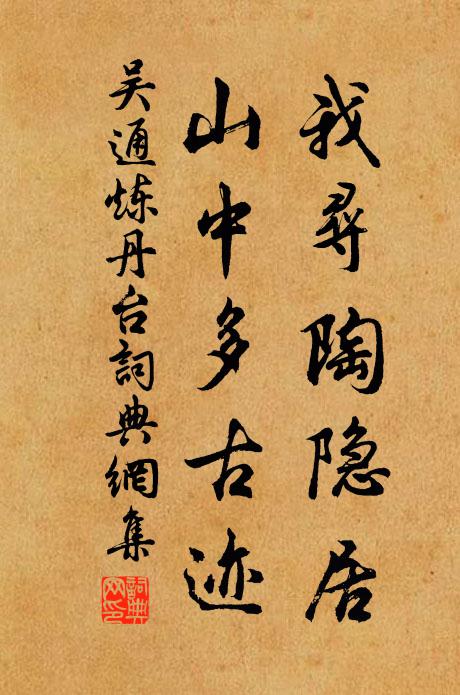 我寻陶隐居
山中多古迹
吴通炼丹台詞典網集
詞典网印